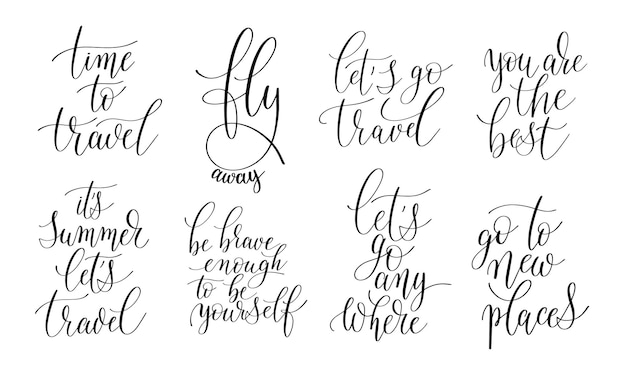 time
to
travel
fly
away
let's go
travel
you are
the
best
it's
summer
let's
travel
be brave
enough
to be
yourself
let's
go
any
where
go to
new
places